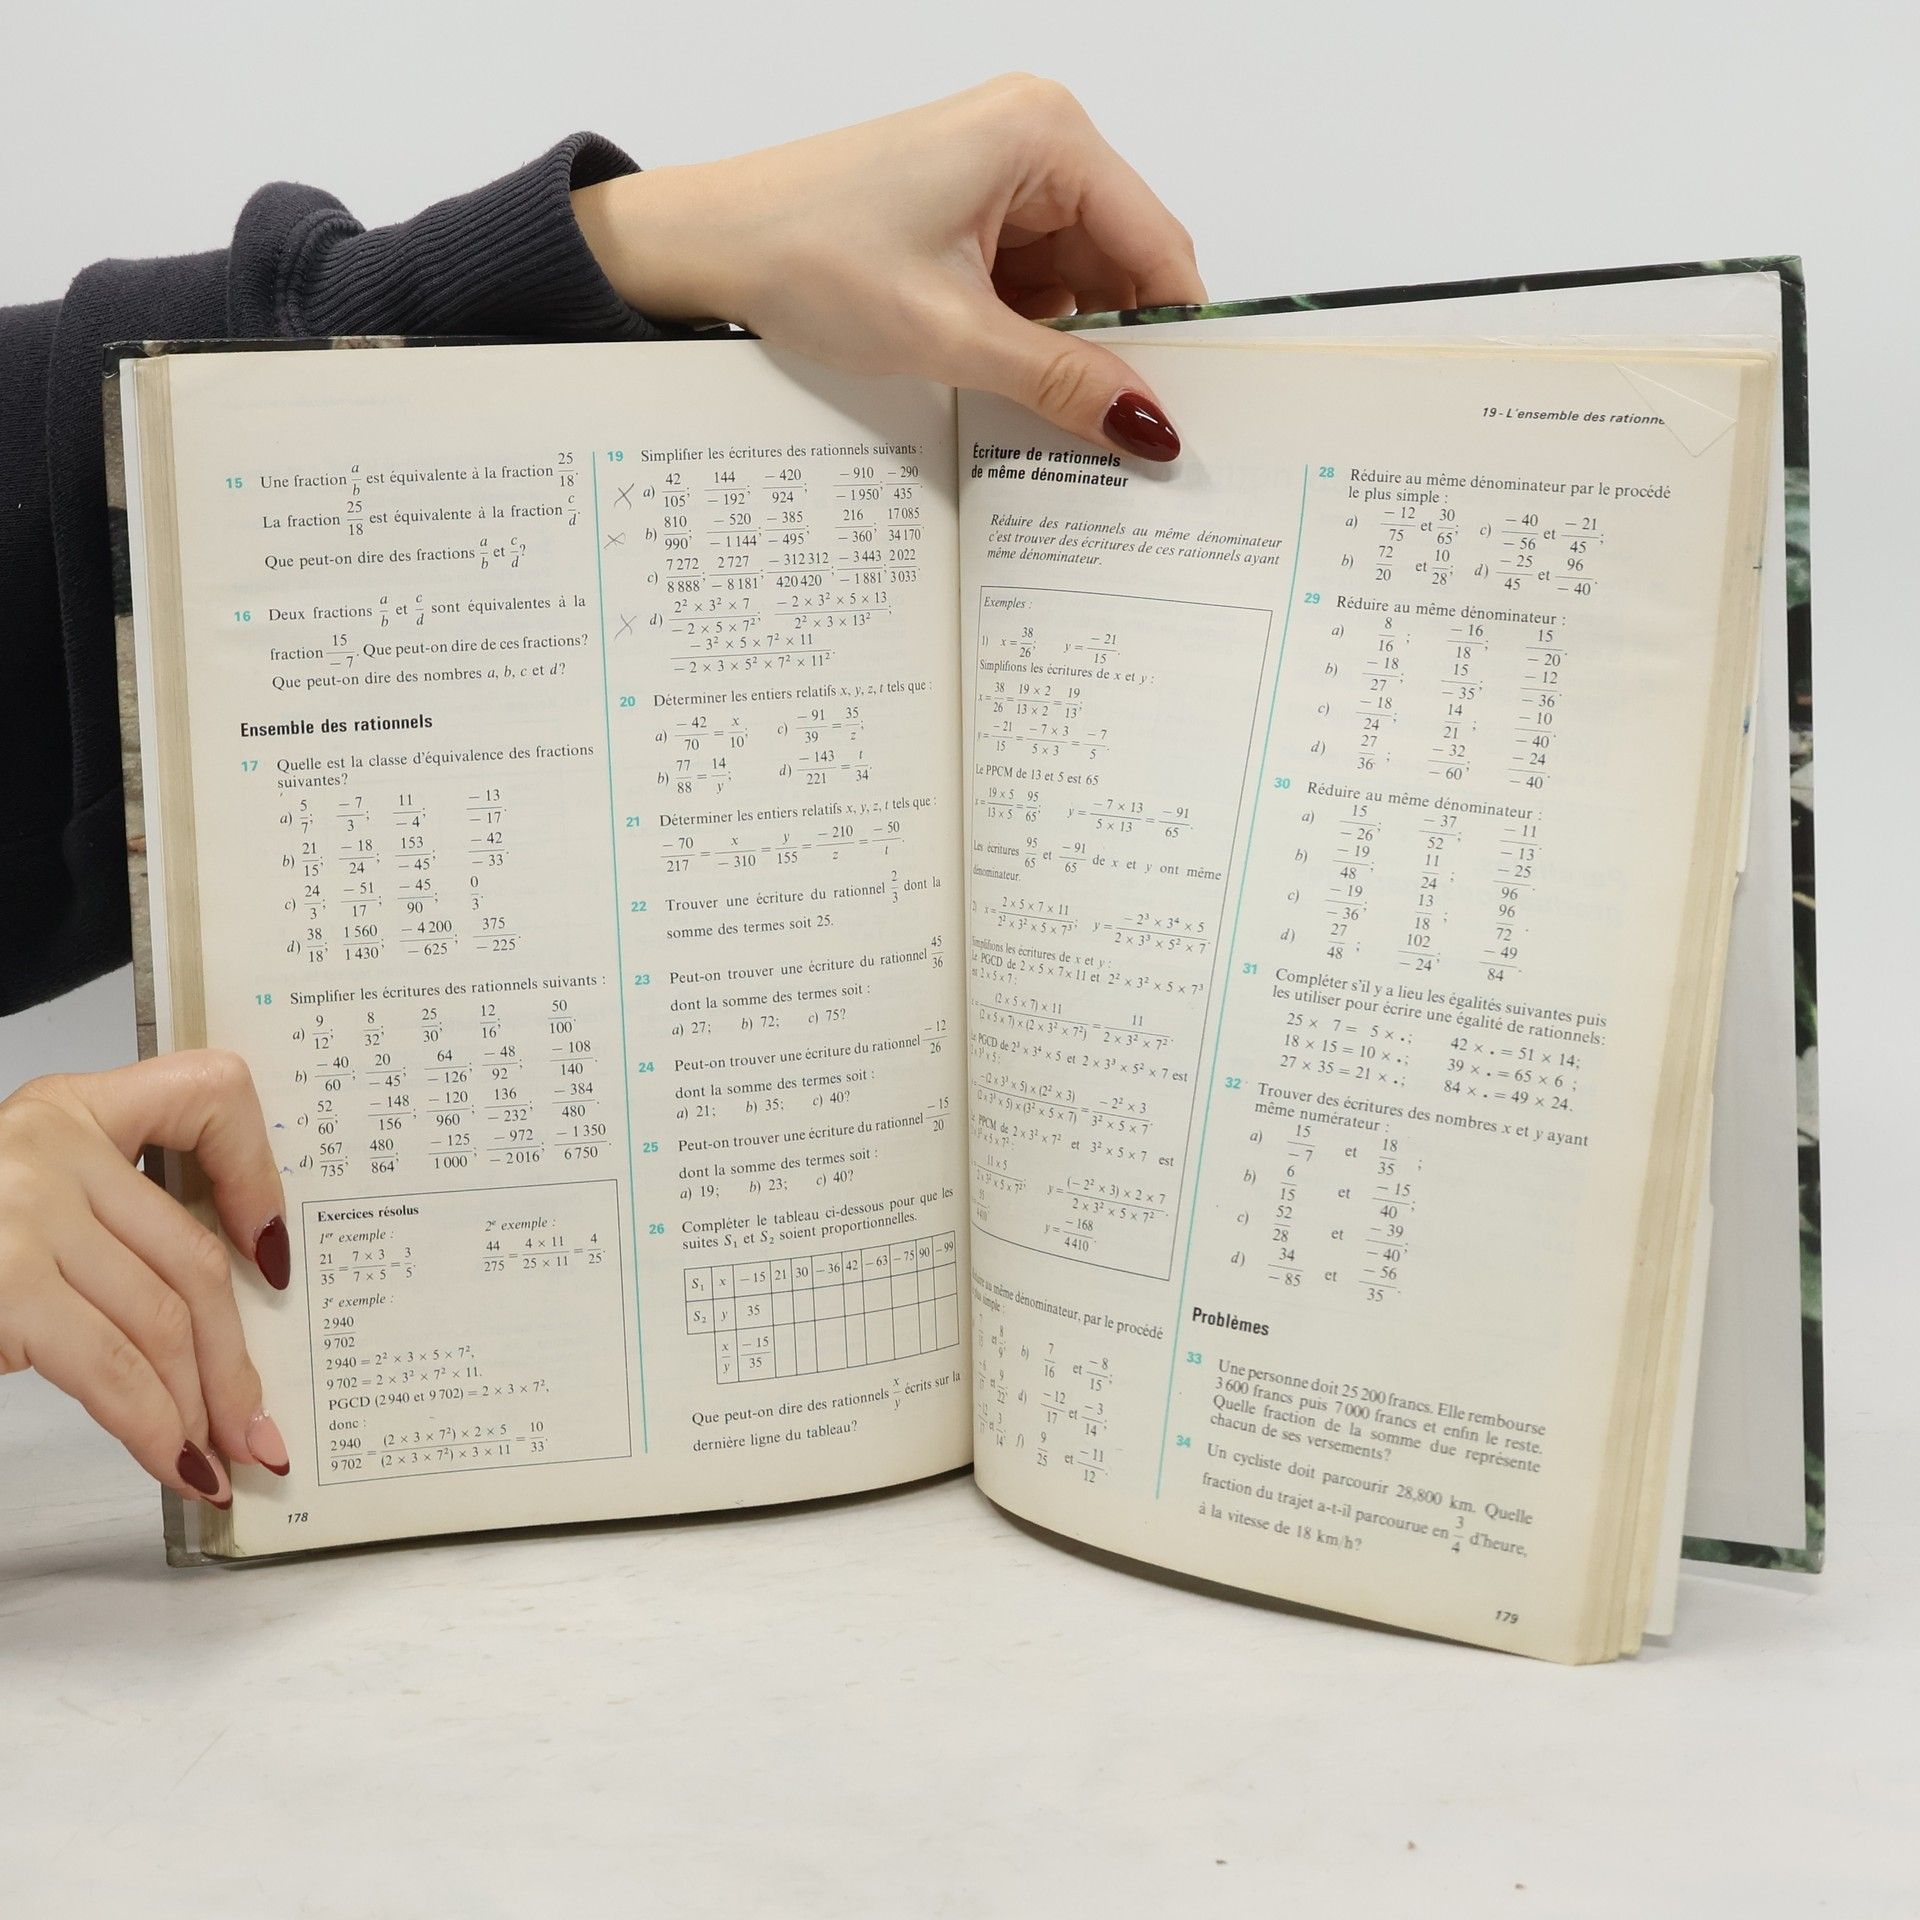 15 Une fraction a/b est équivalente à la fraction 25/18.
La fraction 25/18 est équivalente à la fraction c/d.
Que peut-on dire des fractions a/b et c/d?
16 Deux fractions a/b et c/d sont équivalentes à la
fraction 15/-7. Que peut-on dire de ces fractions?
Que peut-on dire des nombres a, b, c et d?
Ensemble des rationnels
17 Quelle est la classe d'équivalence des fractions
suivantes?
a) 5/7; -7/3; 11/-4; -13/-17.
b) 21/15; -18/24; 153/-45; -42/-33.
c) 24/3; -51/17; -45/90; 0/3.
d) 38/18; 1560/1430; -4200/-625; 375/-225.
18 Simplifier les écritures des rationnels suivants :
a) 9/12; 8/32; 25/30; 12/16; 50/100.
b) -40/60; 20/-45; 64/-126; -48/92; -108/140.
c) 52/60; -148/156; -120/960; 136/-232; -384/480.
d) 567/735; 480/864; -125/1000; -972/-2016; -1350/6750.
Exercices résolus
1er exemple :
21/35 = 7 × 3/7 × 5 = 3/5.
2e exemple :
44/275 = 4 × 11/25 × 11 = 4/25.
3e exemple :
2940/9702
2940 = 2² × 3 × 5 × 7²,
9702 = 2 × 3² × 7² × 11.
PGCD (2940 et 9702) = 2 × 3 × 7²,
donc :
2940/9702 = (2 × 3 × 7²) × 2 × 5/(2 × 3 × 7²) × 3 × 11 = 10/33.
178
19 Simplifier les écritures des rationnels suivants :
a) 42/105; 144/-192; -420/924; -910/-1950; -290/435.
b) 810/990; -520/-1144; -385/-495; 216/-360; 17085/34170.
c) 7272/8888; 2727/-8181; -312312/420420; -3443/-1881; 2022/3033.
d) 2² × 3² × 7/-2 × 5 × 7²; -2 × 3² × 5 × 13/2² × 3 × 13²;
-3² × 5 × 7² × 11/-2 × 3 × 5² × 7² × 11².
20 Déterminer les entiers relatifs x, y, z, t tels que :
a) -42/70 = x/10; c) -91/39 = 35/z;
b) 77/88 = 14/y; d) -143/221 = t/34.
21 Déterminer les entiers relatifs x, y, z, t tels que :
-70/217 = x/-310 = y/155 = -210/z = -50/t.
22 Trouver une écriture du rationnel 2/3 dont la
somme des termes soit 25.
23 Peut-on trouver une écriture du rationnel 45/36
dont la somme des termes soit :
a) 27; b) 72; c) 75?
24 Peut-on trouver une écriture du rationnel -12/26
dont la somme des termes soit :
a) 21; b) 35; c) 40?
25 Peut-on trouver une écriture du rationnel -15/20
dont la somme des termes soit :
a) 19; b) 23; c) 40?
26 Compléter le tableau ci-dessous pour que les
suites S₁ et S₂ soient proportionnelles.
S₁ x -15 21 30 -36 42 -63 -75 90 -99
S₂ y 35
x/y -15/35
Que peut-on dire des rationnels x/y écrits sur la
dernière ligne du tableau?
19 - L'ensemble des rationne
Écriture de rationnels
de même dénominateur
Réduire des rationnels au même dénominateur
c'est trouver des écritures de ces rationnels ayant
même dénominateur.
Exemples :
1) x = 38/26; y = -21/15.
Simplifions les écritures de x et y :
x = 38/26 = 19 × 2/13 × 2 = 19/13;
y = -21/15 = -7 × 3/5 × 3 = -7/5.
Le PPCM de 13 et 5 est 65
x = 19 × 5/13 × 5 = 95/65; y = -7 × 13/5 × 13 = -91/65.
Les écritures 95/65 et -91/65 de x et y ont même
dénominateur.
2) x = 2 × 5 × 7 × 11/2² × 3² × 5 × 7³; y = -2³ × 3⁴ × 5/2 × 3³ × 5² × 7.
Simplifions les écritures de x et y :
Le PGCD de 2 × 5 × 7 × 11 et 2² × 3² × 5 × 7³
est 2 × 5 × 7 :
(2 × 5 × 7) × 11/(2 × 5 × 7) × (2 × 3² × 7²) = 11/2 × 3² × 7².
PGCD de 2³ × 3⁴ × 5 et 2 × 3³ × 5² × 7 est
2 × 3³ × 5 :
-(2 × 3³ × 5) × (2² × 3)/(2 × 3³ × 5) × (3² × 5 × 7) = -2² × 3/3² × 5 × 7.
PPCM de 2 × 3² × 7² et 3² × 5 × 7 est
11 × 5/2 × 3² × 5 × 7²; y = (-2² × 3) × 2 × 7/2 × 3² × 5 × 7².
y = -168/4410.
au même dénominateur, par le procédé
plus simple :
b) 7/16 et -8/15;
d) -12/17 et -3/14;
f) 9/25 et -11/12.
28 Réduire au même dénominateur par le procédé
le plus simple :
a) -12/75 et 30/65; c) -40/-56 et -21/45;
b) 72/20 et 10/28; d) -25/45 et 96/-40.
29 Réduire au même dénominateur :
a) 8/16; -16/18; 15/-20.
b) -18/27; 15/-35; -12/-36.
c) -18/24; 14/21; -10/-40.
d) 27/36; -32/-60; -24/-40.
30 Réduire au même dénominateur :
a) 15/-26; -37/52; -11/-13.
b) -19/48; 11/24; -25/96.
c) -19/-36; 13/18; 96/72.
d) 27/48; 102/-24; -49/84.
31 Compléter s'il y a lieu les égalités suivantes puis
les utiliser pour écrire une égalité de rationnels:
25 × 7 = 5 × .; 42 × . = 51 × 14;
18 × 15 = 10 × .; 39 × . = 65 × 6 ;
27 × 35 = 21 × .; 84 × . = 49 × 24.
32 Trouver des écritures des nombres x et y ayant
même numérateur :
a) 15/-7 et 18/35 ;
b) 6/15 et -15/40;
c) 52/28 et -39/-40;
d) 34/-85 et -56/35.
Problèmes
33 Une personne doit 25 200 francs. Elle rembourse
3 600 francs puis 7 000 francs et enfin le reste.
Quelle fraction de la somme due représente
chacun de ses versements?
34 Un cycliste doit parcourir 28,800 km. Quelle
fraction du trajet a-t-il parcourue en 3/4 d'heure,
à la vitesse de 18 km/h?
179